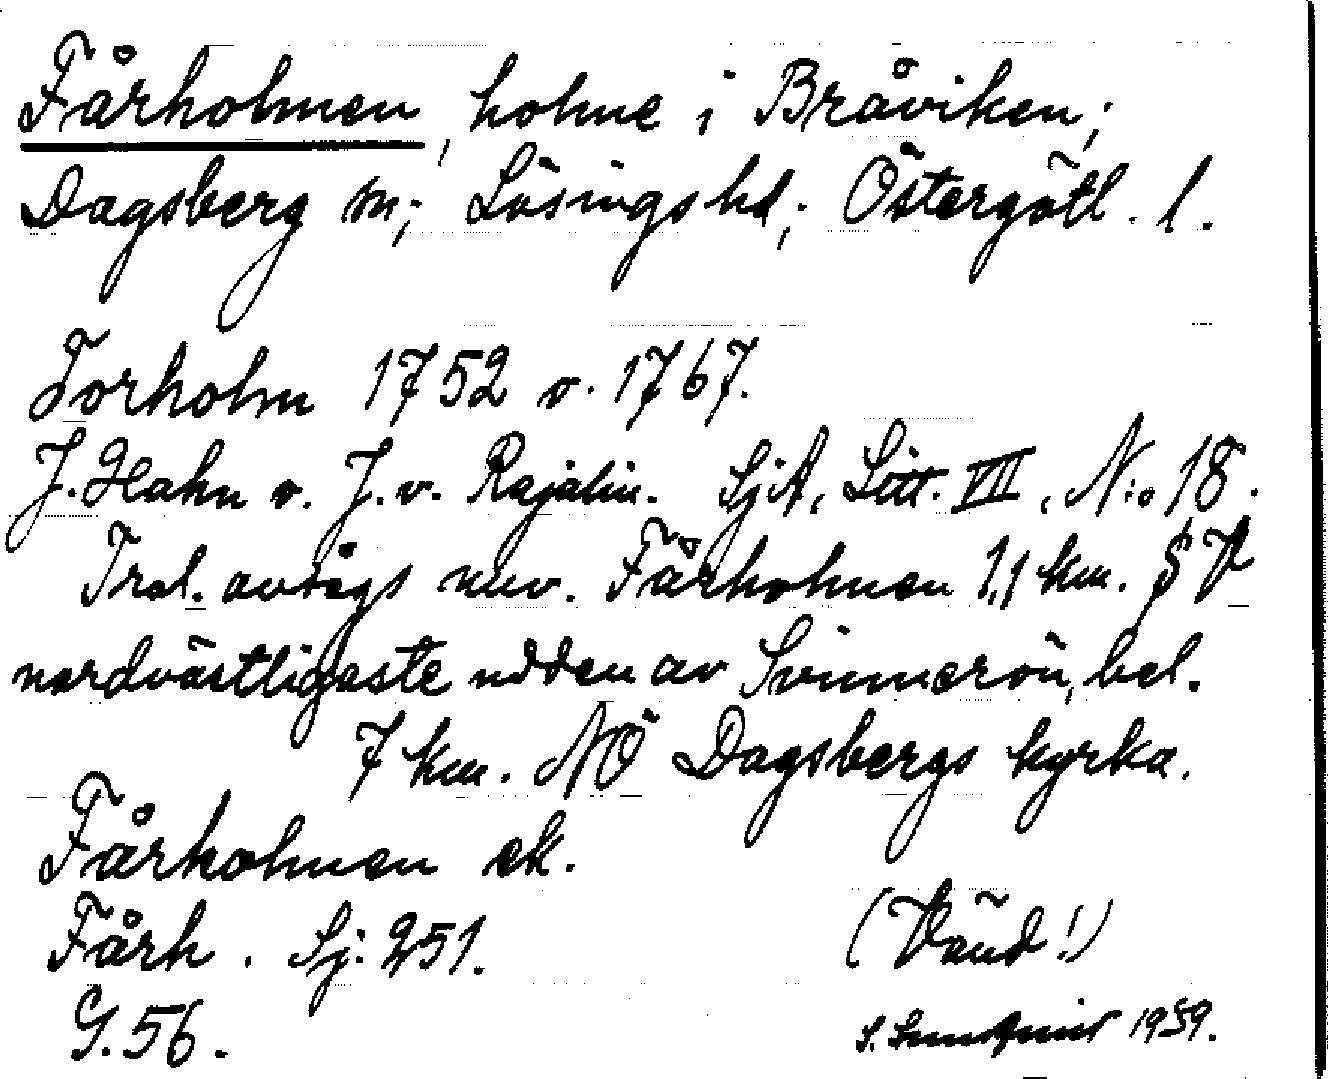 Fårholmen, holme i Bråviken;
Dagsberg sn; Lösings hd; Östergötl. l.
Torholm 1752 o. 1767.
J. Hahn o. J. v. Rajalin. SjA, Litt. VII, N:o 18.
Trol. avsågs nuv. Fårholmen 1,1 km. S V
nordvästligaste udden av Svinnerön, bel.
7 km. NÖ Dagsbergs kyrka.
Fårholmen ek.
Fårh. Sj. 251.
(Vänd!)
G. 56.
S. 1959.